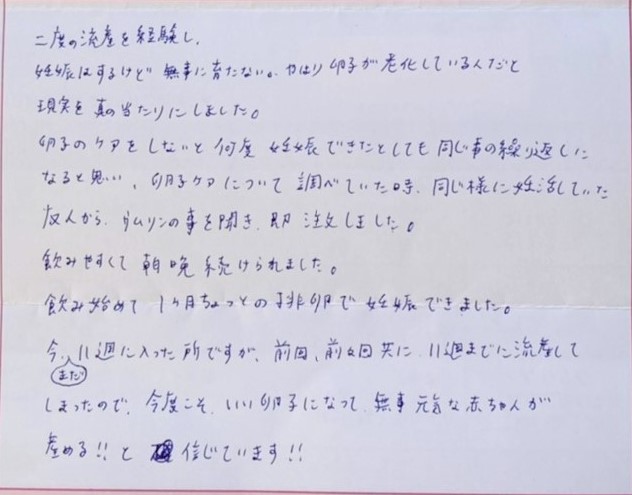 二度の流産を経験し、
妊娠はするけど無事に育たない。やはり卵子が老化しているんだと
現実を真の当たりにしました。
卵子のケアをしないと何度妊娠できたとしても同じ事の繰り返しに
なると思い、卵子ケアについて調べていた時、同じ様に妊活していた
友人から、タムリンの事を聞き、即注文しました。
飲みやすくて朝晩続けられました。
飲み始めて1ヶ月ちょっとの排卵で妊娠できました。
今、まだ11週に入った所ですが、前回、前々回共に、11週までに流産して
しまったので、今度こそ、いい卵子になって、無事元気な赤ちゃんが
産める!!と信じています!!